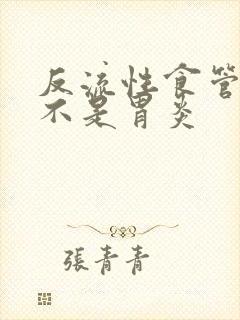 反流性食管
不是胃炎
張青青